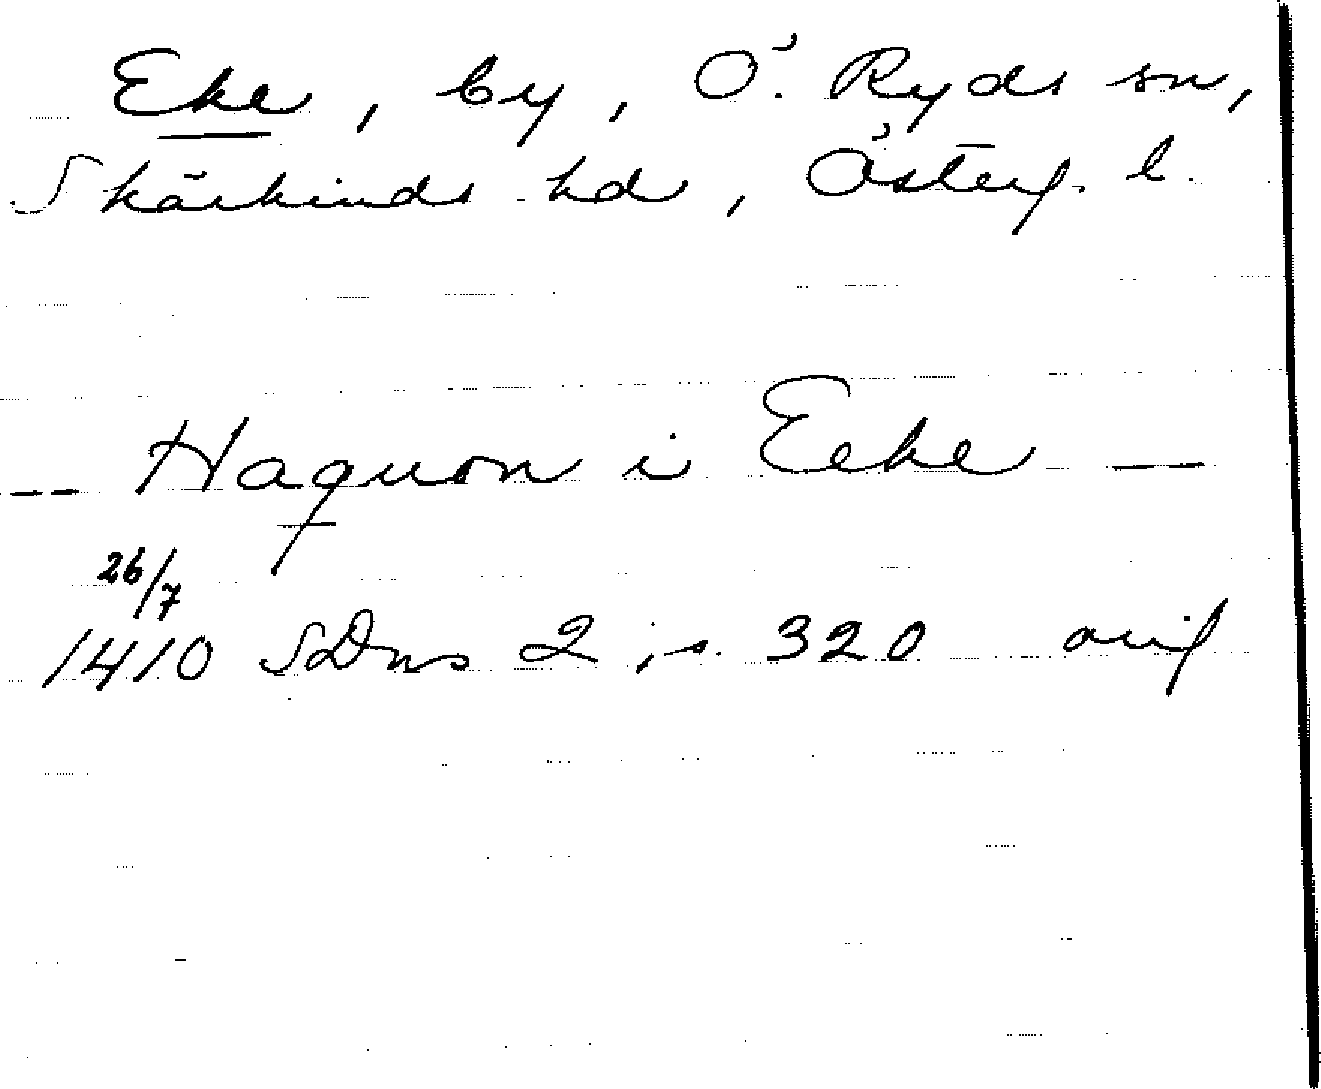 Eke, by, Ö. Ryds sn,
Skärkinds hd, Österg. l.
--- Haquon i Eeke —
26/7
1410 SDns 2, s. 320 orig